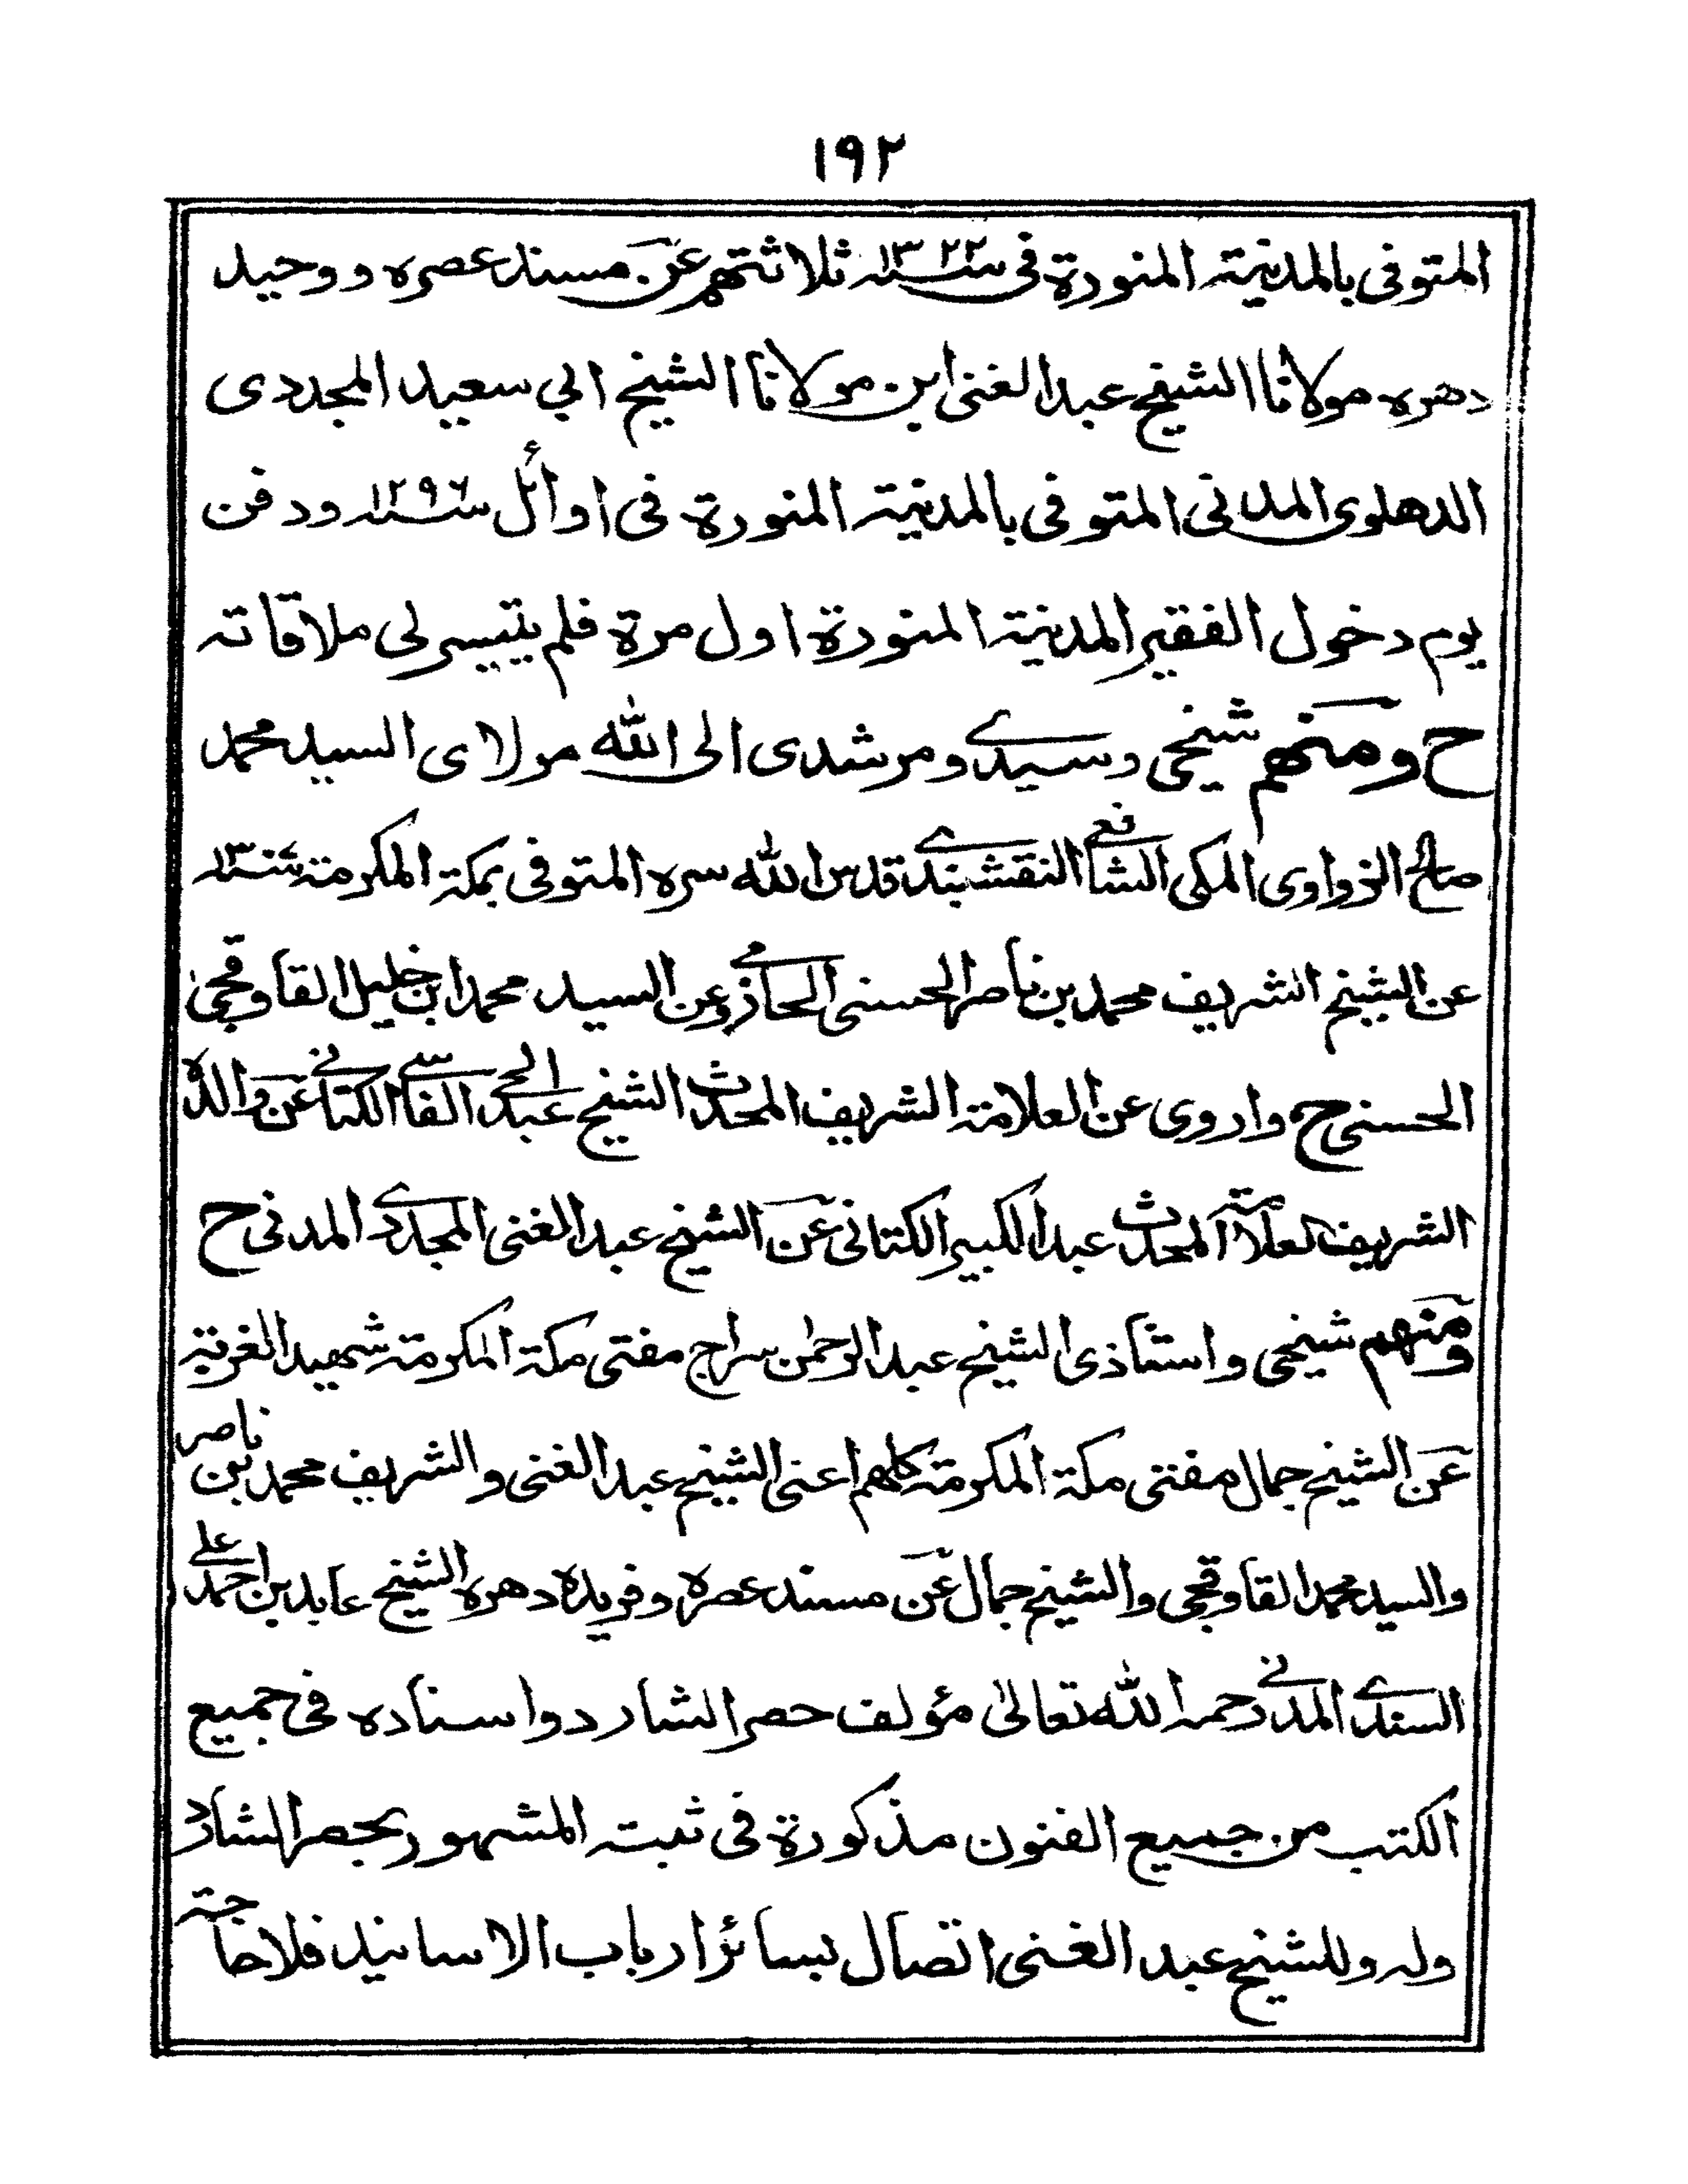 ١٩٢
المتوفى بالمدينة المنورة فى سنة ١٣٢٢ ثلاثتهم عن مسند عصره ووحيد
دهره مولانا الشيخ عبد الغنى ابن مولانا الشيخ ابي سعيد المجددى
الدهلوى المدنى المتوفى بالمدينة المنورة فى اوائل سنة ١٢٩٦ ودفن
يوم دخول الفقير المدينة المنورة اول مرة فلم يتيسر لى ملاقاته
ح ومنهم شيخى وسيدى ومرشدى الى الله مولاى السيد محمد
صالح الزواوى المكى الشافعى النقشبندى قدس الله سره المتوفى بمكة المكرمة
عن الشيخ الشريف محمد بن ناصر الحسنى الحازمى وعن السيد محمد ابن خليل القاوقجى
الحسنى ح واروى عن العلامة الشريف المحدث الشيخ عبد الحى الفاسى الكتانى عن والده
الشريف العلامة المحدث عبد الكبير الكتانى عن الشيخ عبد الغنى المجددى المدنى ح
ومنهم شيخى واستاذى الشيخ عبد الرحمن سراج مفتى مكة المكرمة شهيد الغربة
عن الشيخ جمال مفتى مكة المكرمة كلهم اعنى الشيخ عبد الغنى والشريف محمد بن ناصر
والسيد محمد القاوقجى والشيخ جمال عن مسند عصره وفريده دهره الشيخ عابد بن احمد على
السندى المدنى رحمه الله تعالى مؤلف حصر الشارد واسناده فى جميع
الكتب من جميع الفنون مذكورة فى ثبته المشهور بحصر الشارد
وله وللشيخ عبد الغنى اتصال بسائر ارباب الاسانيد فلا حاجة